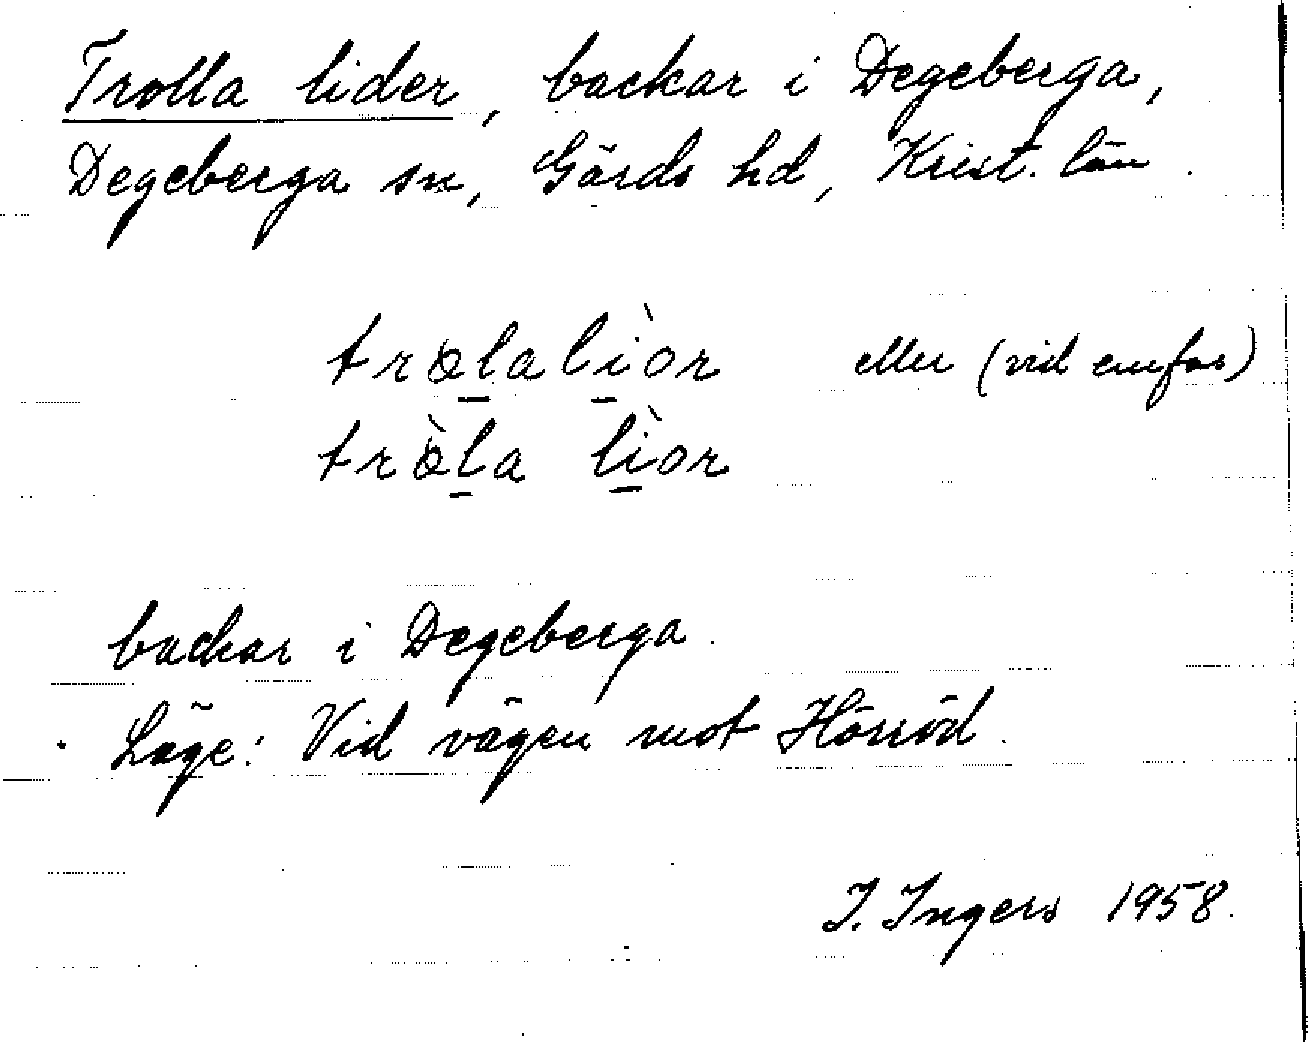 Trolla lider, backar i Degeberga,
Degeberga sn, Gärds hd, Krist. län.
trɷl̠alì̠or eller (vid emfas)
trɷ̀l̠a lì̠or
backar i Degeberga.
Läge: Vid vägen mot Hörröd.
I. Ingers 1958.